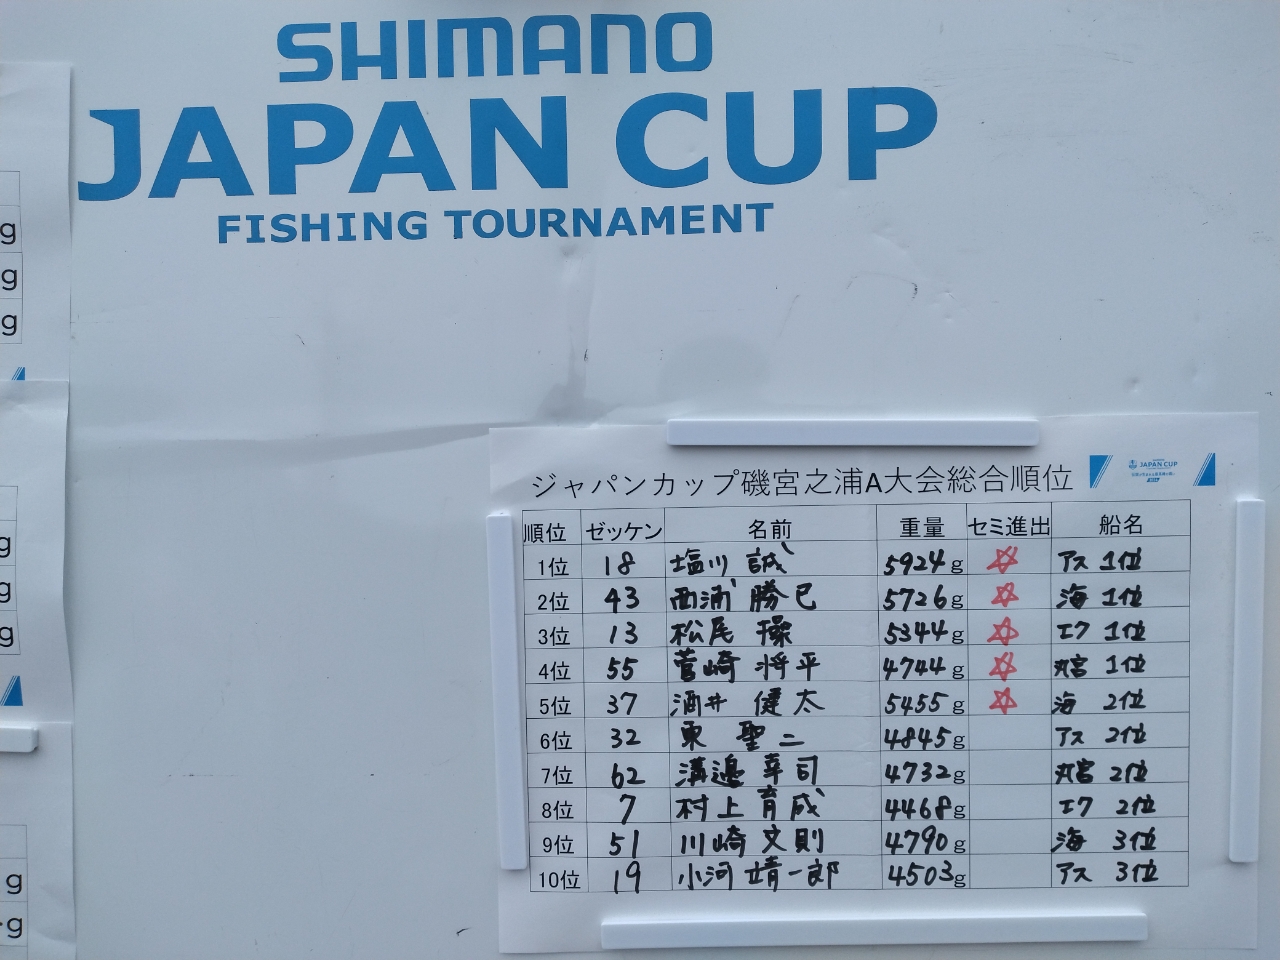 SHIMANO
JAPAN CUP
FISHING TOURNAMENT
ジャパンカップ磯宮之浦A大会総合順位
JAPAN CUP
順位 ゼッケン 名前 重量 セミ進出 船名
1位 18 塩川 誠 5924g ☆ アス 1位
2位 43 西浦 勝巳 5726g ☆ 海 1位
3位 13 松尾 操 5344g ☆ エク 1位
4位 55 菅崎 将平 4744g ☆ 丸宮 1位
5位 37 酒井 健太 5455g ☆ 海 2位
6位 32 東 聖二 4845g アス 2位
7位 62 溝邉 幸司 4732g 丸宮 2位
8位 7 村上 育成 4468g エク 2位
9位 51 川崎 文則 4790g 海 3位
10位 19 小河 靖一郎 4503g アス 3位
g
g
g
g
g
g
g
g